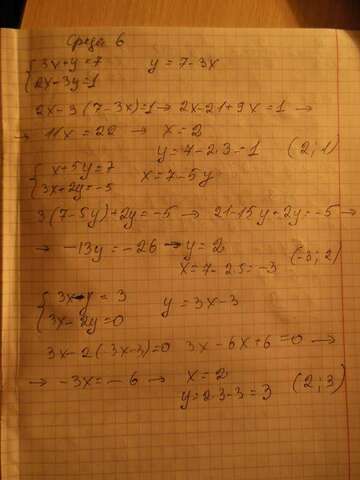 Среда 6
{3x+y=7 y=7-3x
{2x-3y=1
2x-3(7-3x)=1→2x-21+9x=1→
→ 11x=22 → x=2
y=7-2·3=1 (2;1)
{x+5y=7 x=7-5y
{3x+2y=-5
3(7-5y)+2y=-5→21-15y+2y=-5→
→ -13y=-26→y=2
x=7-2·5=-3 (-3;2)
{3x-y=3 y=3x-3
{3x-2y=0
3x-2(3x-3)=0 3x-6x+6=0→
→ -3x=-6→ x=2
y=2·3-3=3 (2;3)